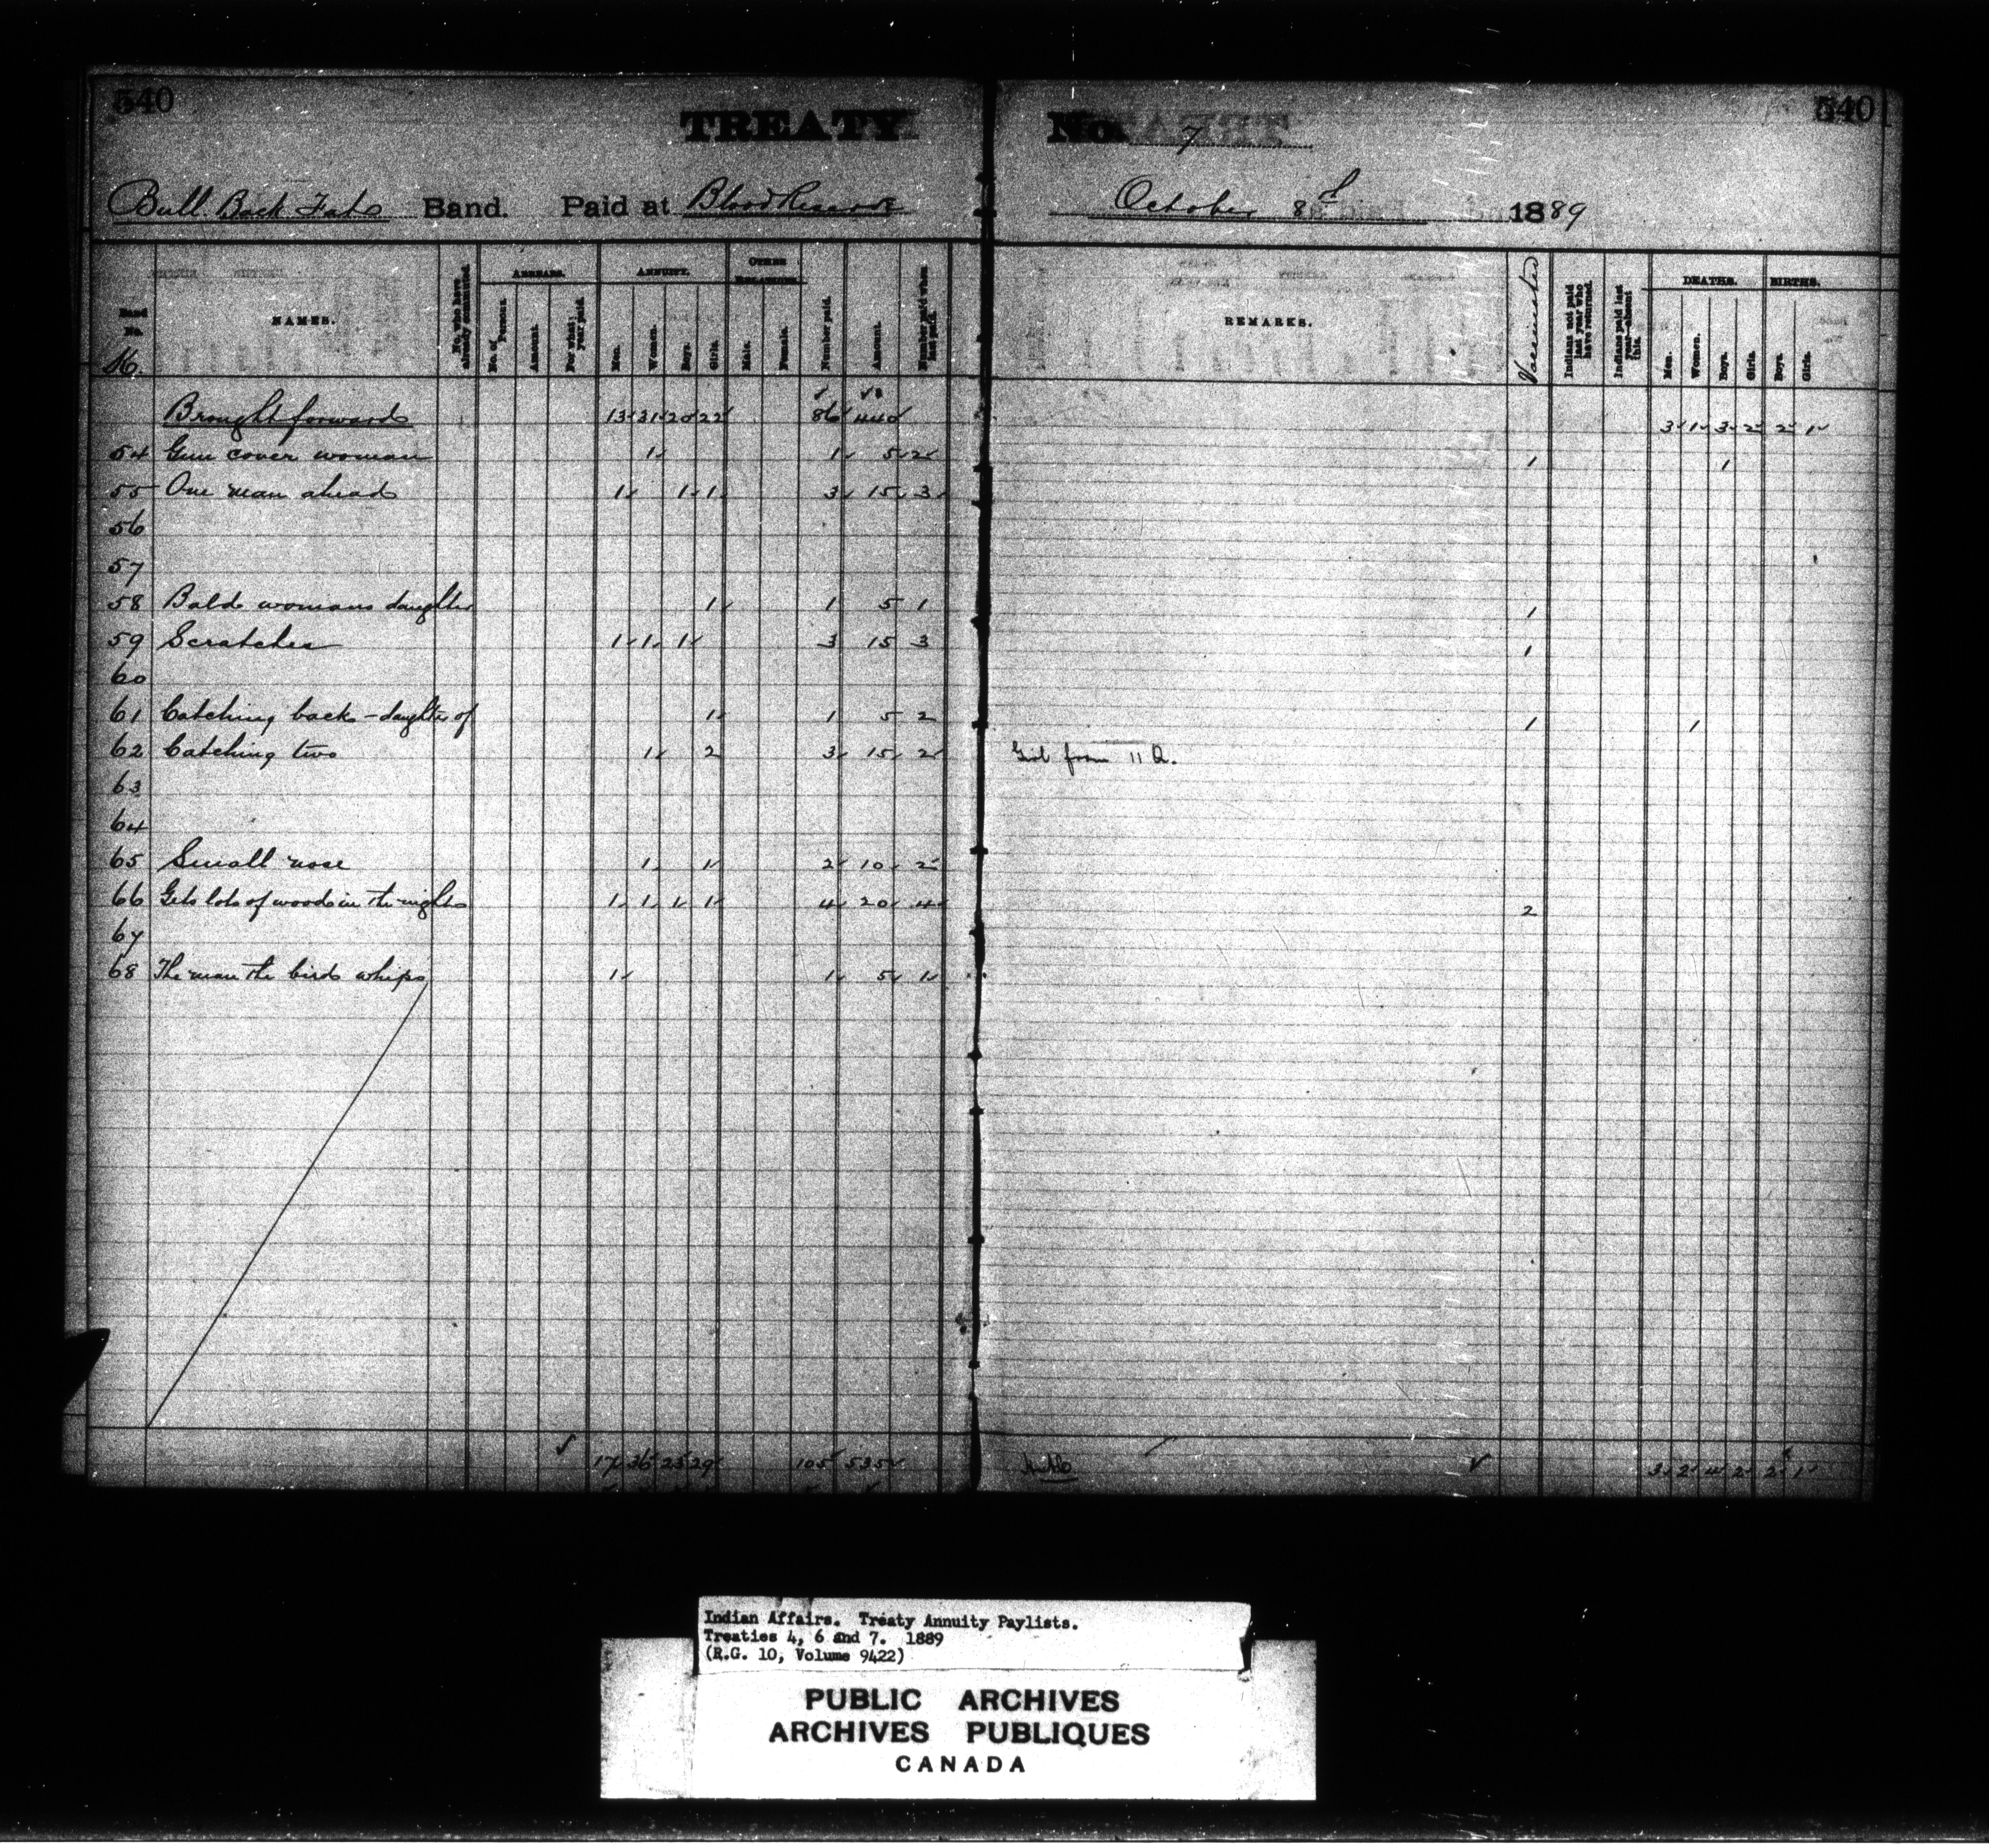 540 540
TREATY No. 7
Bull Back Fats Band. Paid at Blood Reserve October 8th 1889
Band No. NAMES. No. who have already commuted. ARREARS. No. of Persons. Amount. For what year paid. ANNUITY. Men. Women. Boys. Girls. OTHER RELATIONS. Male. Female. Number paid. Amount. Number paid when last paid. REMARKS. Vaccinated Indians not paid last year who have returned. Indians paid last year—absent this. DEATHS. Men. Women. Boys. Girls. BIRTHS. Boys. Girls.
16.
Brought forward 13 31 20 22 86 440 3 1 3 2 2 1
54 Gun cover woman 1 1 5 2 1 1
55 One man ahead 1 1 1 3 15 3
56
57
58 Bald womans daughter 1 1 5 1 1
59 Scratches 1 1 1 3 15 3 1
60
61 Catching back - daughter of 1 1 5 2 1 1
62 Catching two 1 2 3 15 2 Girl from 11 Q.
63
64
65 Small nose 1 1 2 10 2
66 Gets lots of woods in the night 1 1 1 1 4 20 4 2
67
68 The man the bird whips 1 1 5 1
17 36 23 29 105 535 3 2 4 2 2 1
Indian Affairs. Treaty Annuity Paylists.
Treaties 4, 6 and 7. 1889
(R.G. 10, Volume 9422)
PUBLIC ARCHIVES
ARCHIVES PUBLIQUES
CANADA